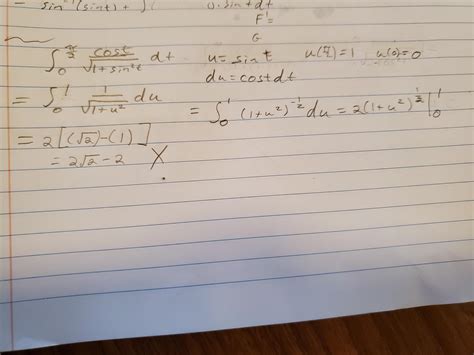 = sin⁻¹(sint) +
0. sint dt
F'=
G
∫₀^(π/2) cost/√(1+sin²t) dt   u = sin t   u(π/2)=1   u(0)=0
du = cost dt
= ∫₀¹ 1/√(1+u²) du   = ∫₀¹ (1+u²)^(-1/2) du = 2(1+u²)^(1/2) |₀¹
= 2[(√2)-(1)]
= 2√2 - 2   X